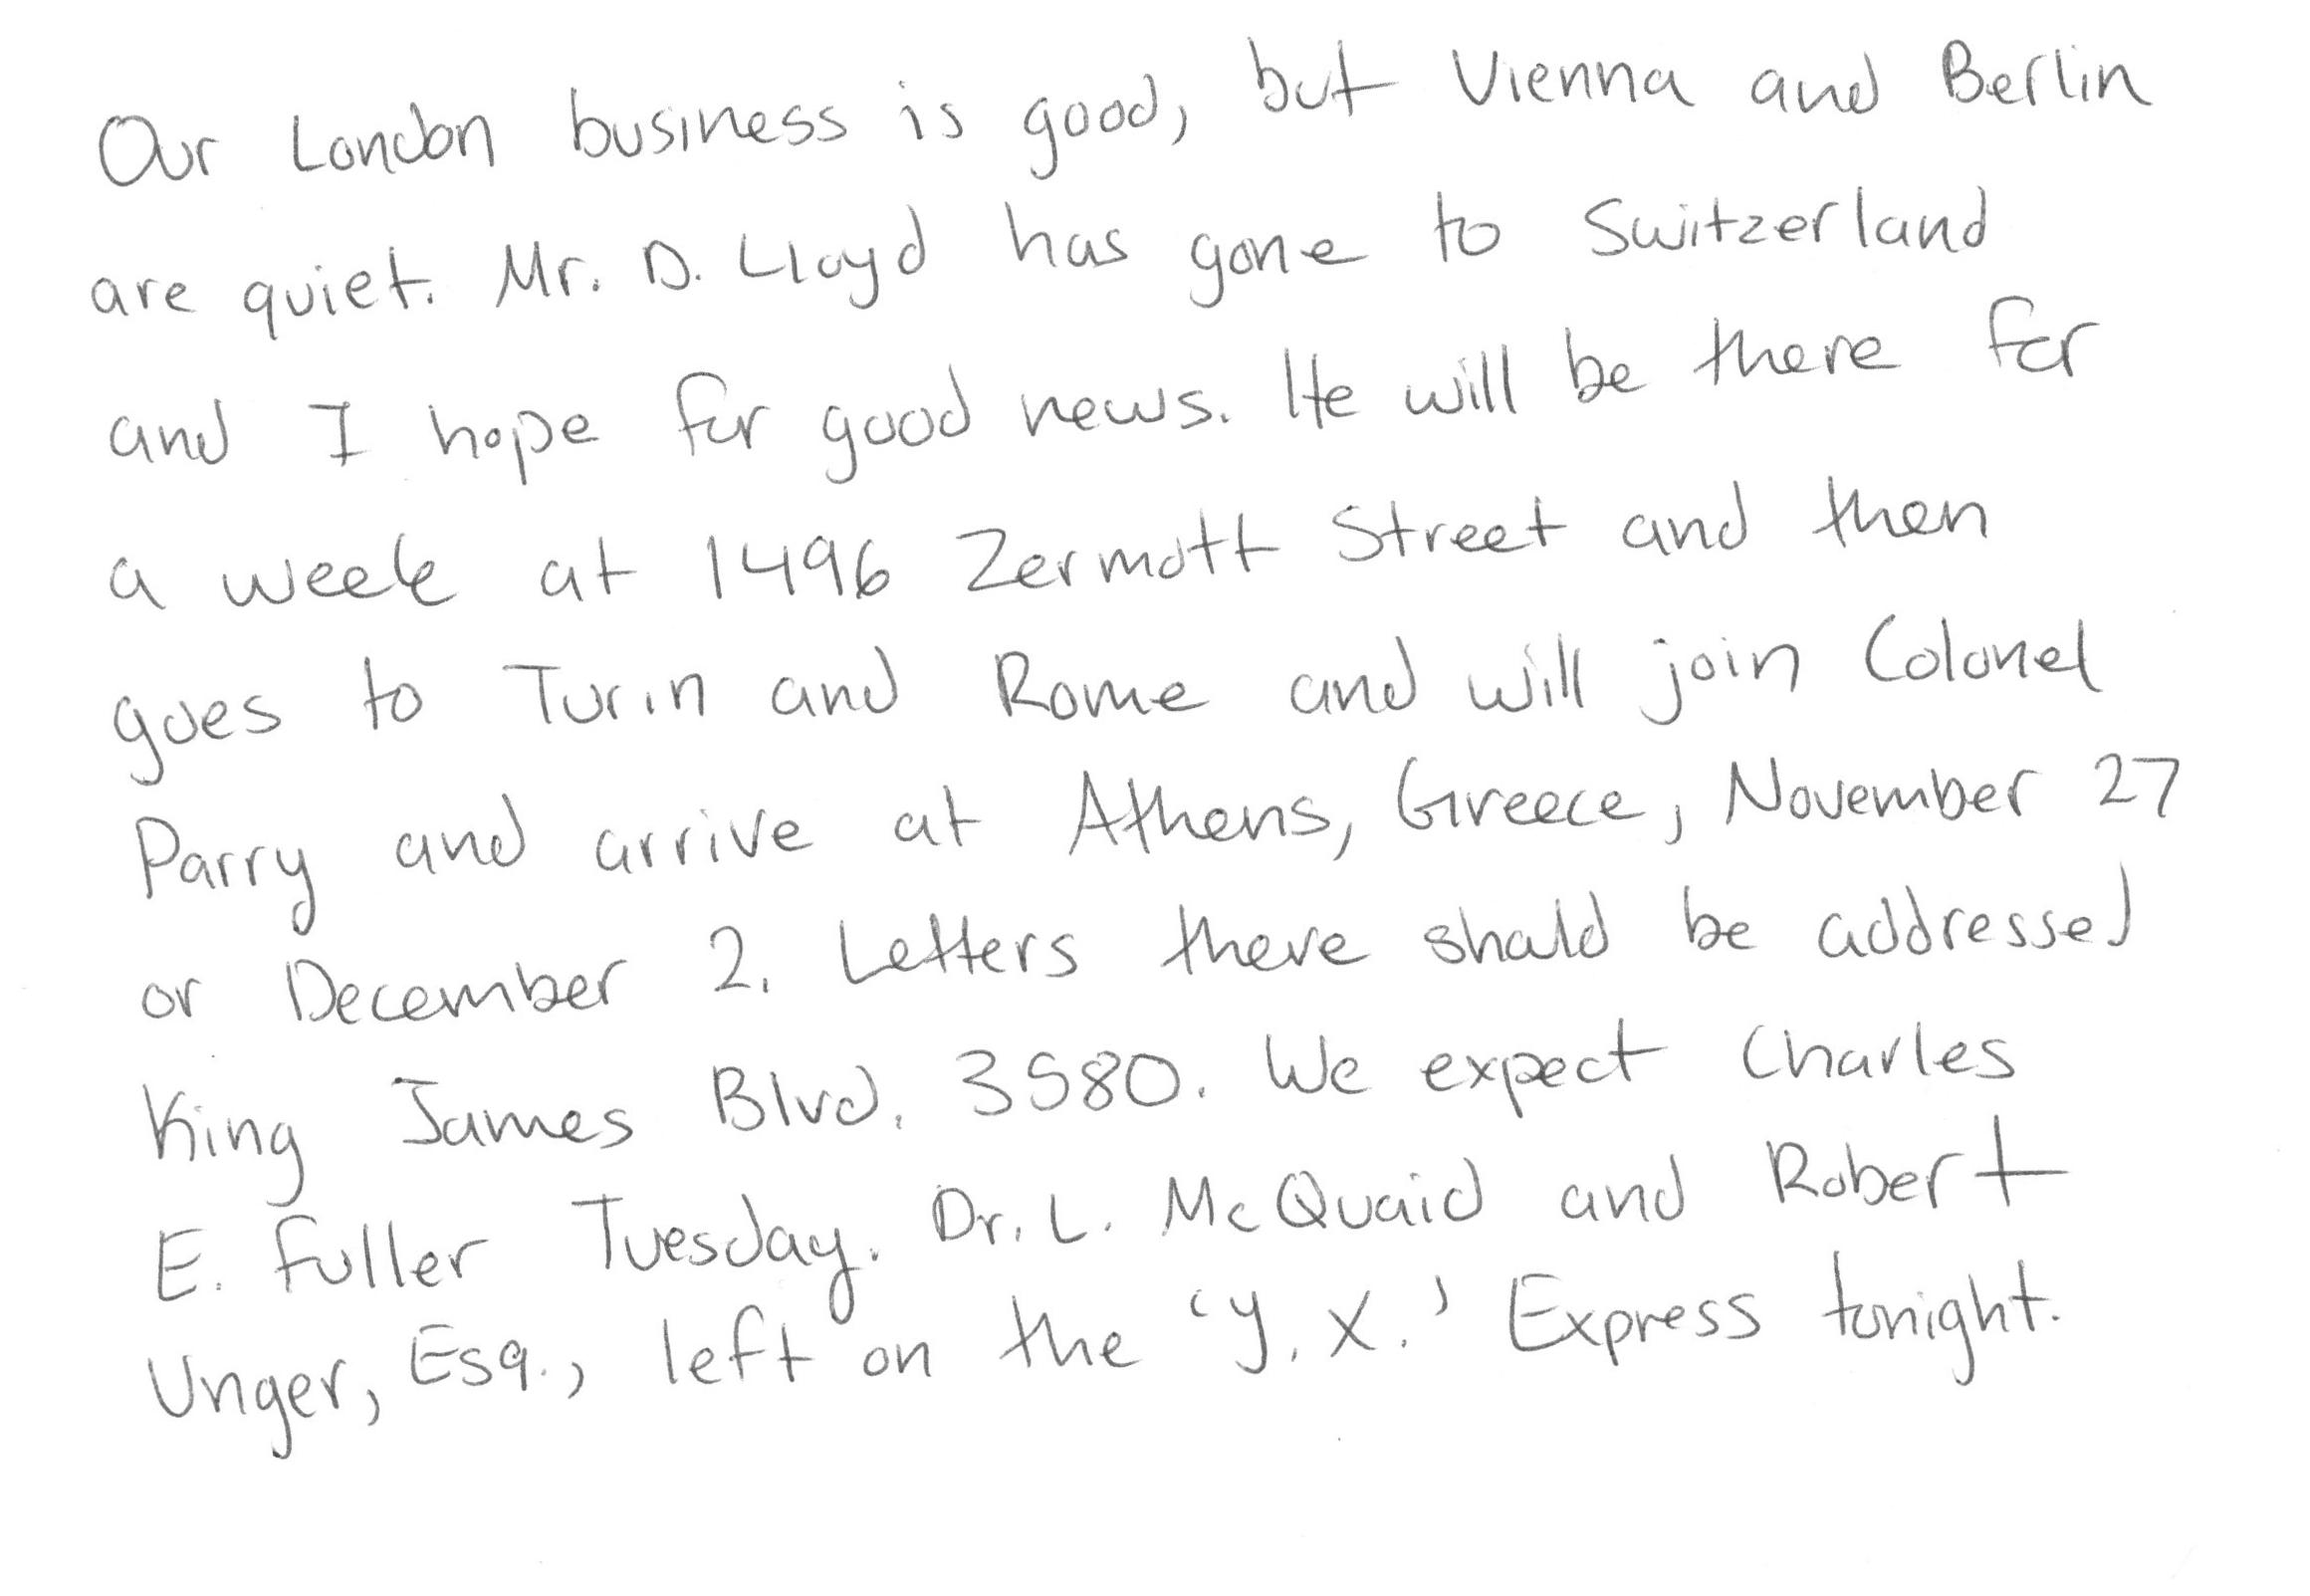 Our London business is good, but Vienna and Berlin
are quiet. Mr. D. Lloyd has gone to Switzerland
and I hope for good news. He will be there for
a week at 1496 Zermott Street and then
goes to Turin and Rome and will join Colonel
Parry and arrive at Athens, Greece, November 27
or December 2. Letters there should be addressed
King James Blvd. 3580. We expect Charles
E. Fuller Tuesday. Dr. L. McQuaid and Robert
Unger, Esq., left on the 'Y. X.' Express tonight.